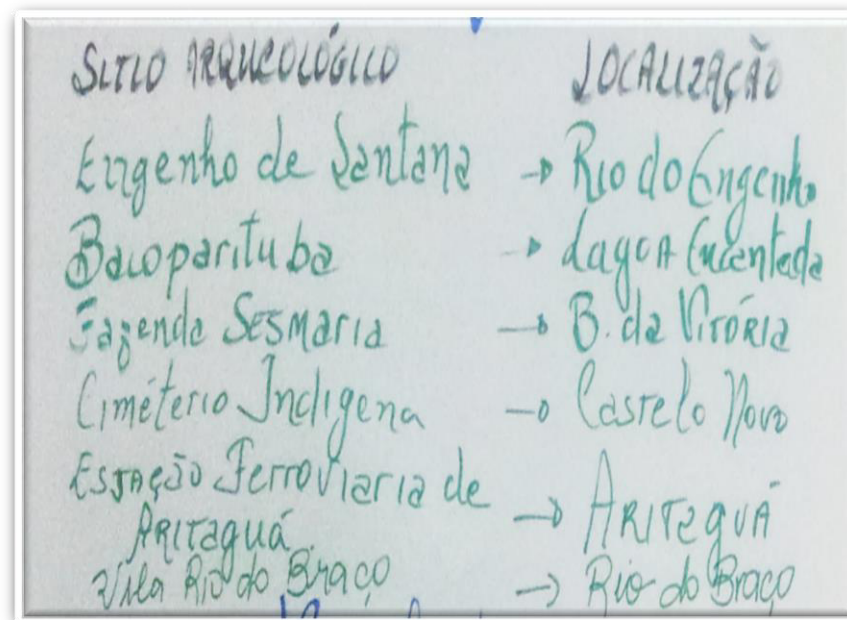 SITIO ARQUEOLÓGICO LOCALIZAÇÃO
Engenho de Santana → Rio do Engenho
Bacoparituba → Lagoa Encantada
Fazenda Sesmaria → B. da Vitória
Cimétério Indigena → Castelo Novo
Estação Ferroviaria de
Aritaguá → Aritaguá
Vila Rio do Braço → Rio do Braço